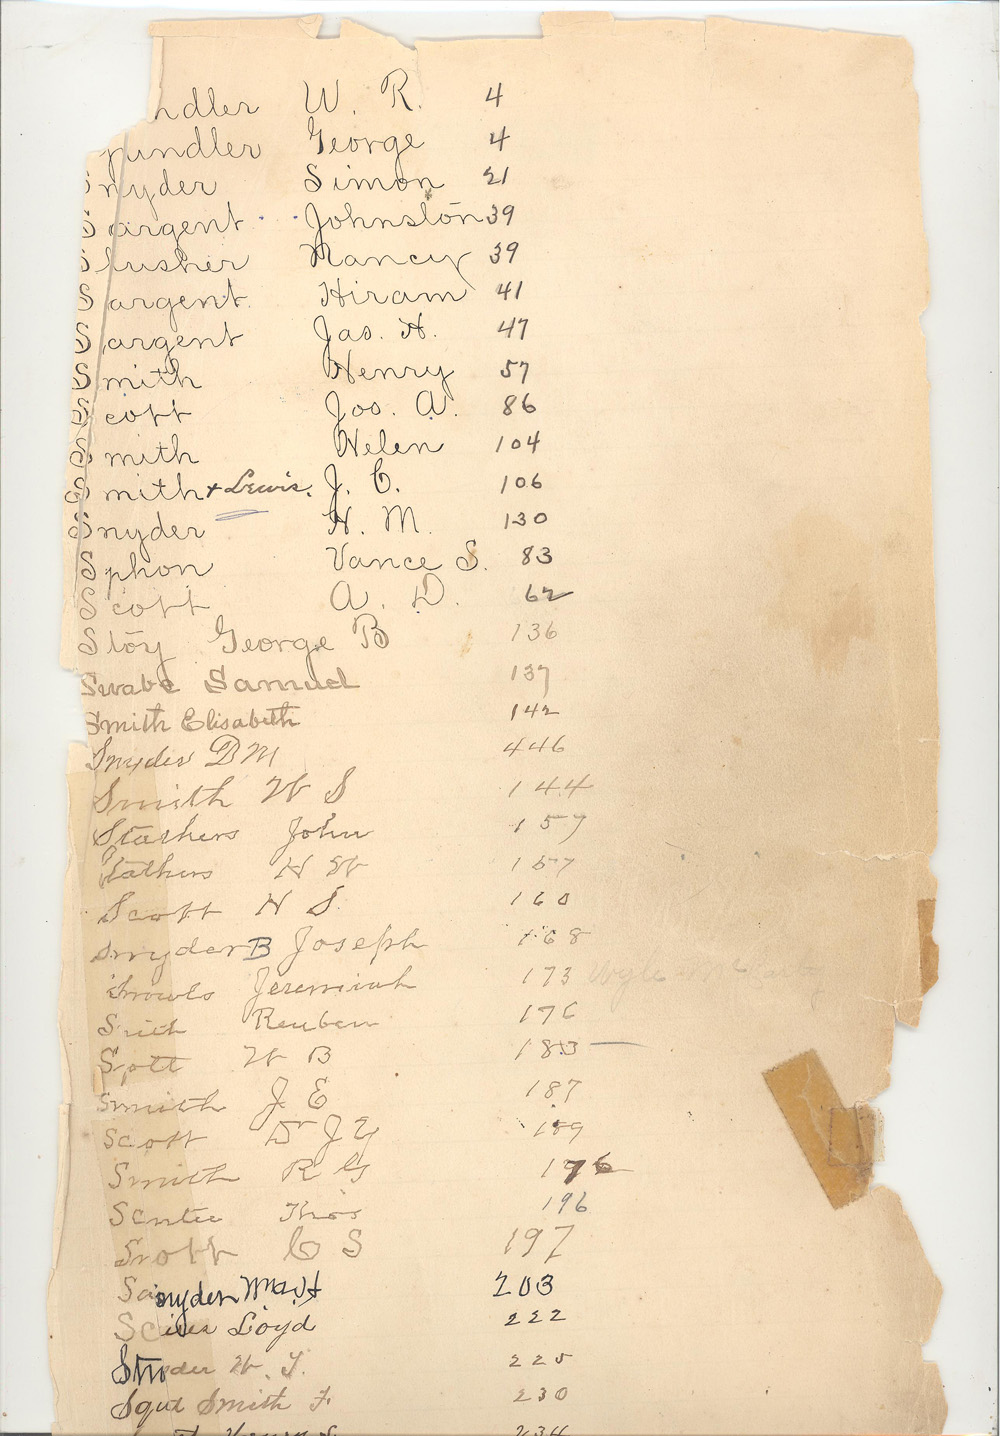 ndler W. R. 4
pindler George 4
Snyder Simon 21
Sargent Johnston 39
Slusher Nancy 39
Sargent Hiram 41
Sargent Jas. H. 47
Smith Henry 57
Scott Jos. A. 86
Smith Helen 104
Smith & Lewis. J. C. 106
Snyder H. M. 130
Sphon Vance S. 83
Scott A. D. 62
Stoy George B 136
Swabe Samuel 137
Smith Elisabeth 142
Snyder D M 446
Smith W S 144
Stathers John 157
Stathers H W 157
Scott H S 160
Snyder B Joseph 168
Jeremiah 173
Reuben 176
W B 183
Smith J E 187
Scott Dr J Y 189
Smith R G 196
Thos 196
C S 197
Snyder 203
Loyd 222
Snyder W. T. 225
Squt Smith F 230
234